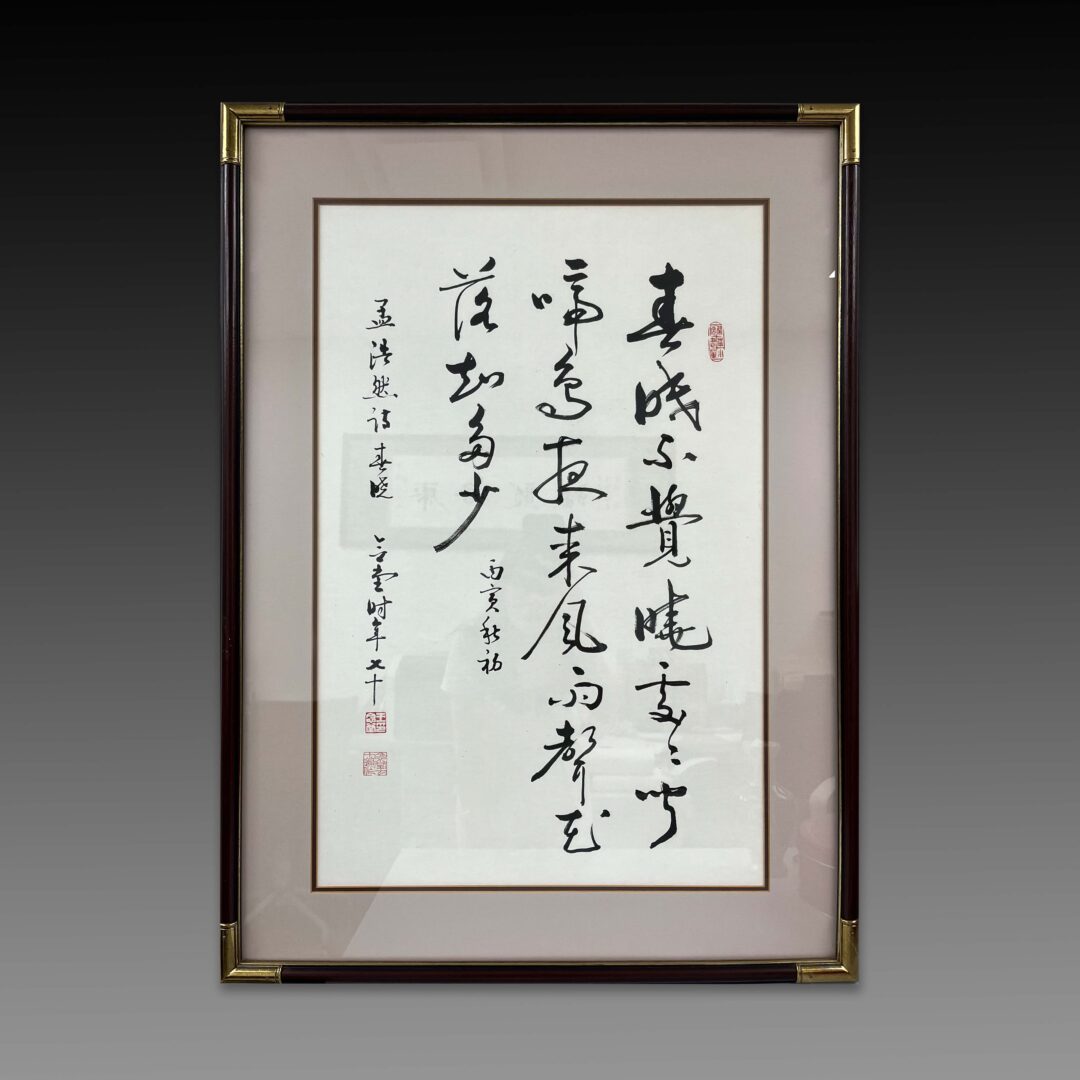 春眠不覺曉處〻聞
啼鳥夜来風雨聲花
落知多少
丙寅秋初
孟浩然诗春晓
堂时年七十